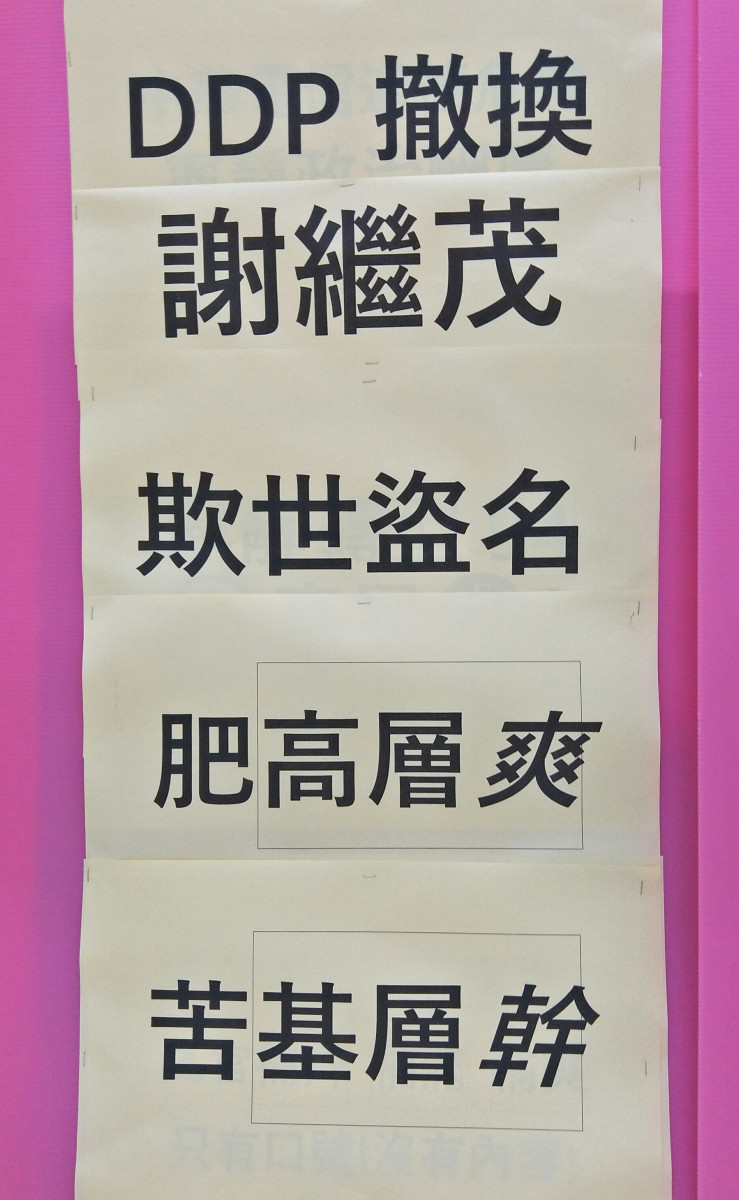 DDP 撤換
謝繼茂
欺世盜名
肥高層爽
苦基層幹